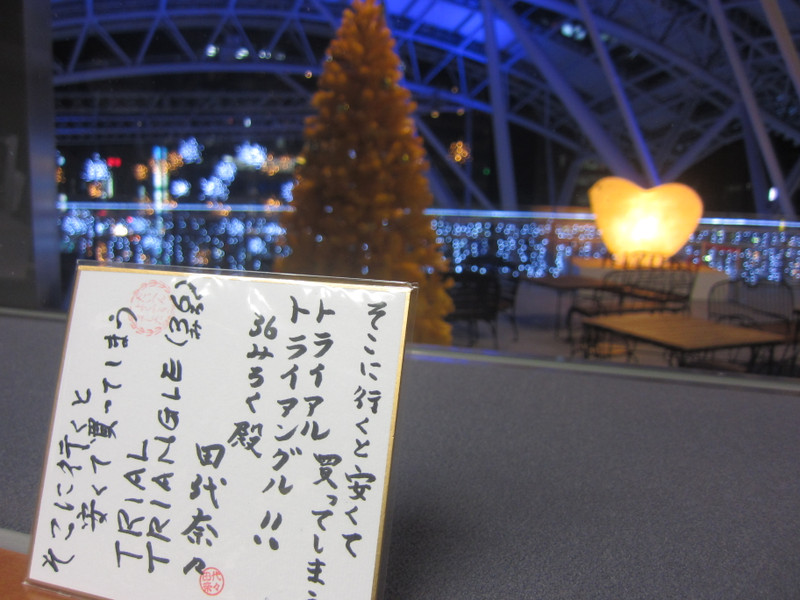 そこに行くと安くて
買ってしまう
トライアル
トライアングル!!
36みろく殿
田代奈々
TRIANGLE (36)
TRIAL
買ってしまう
安くて
そこに行くと